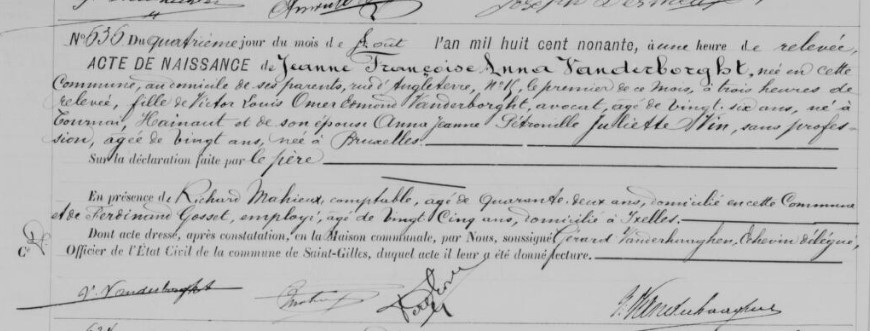 N° 636 Du quatrième jour du mois de Août l'an mil huit cent nonante, à une heure de relevée,
ACTE DE NAISSANCE de Jeanne Françoise Anna Vanderborght, née en cette
Commune, au domicile de ses parents, rue d'Angleterre, N° le premier de ce mois, à trois heures de
relevée, fille de Victor Louis Omer Edmond Vanderborght, avocat, agé de vingt-six ans, né à
Tournai, Hainaut et de son épouse Anna Jeanne Pétronille Juliette sans profes-
sion, âgée de vingt ans, née à Bruxelles.
Sur la déclaration faite par le père
En présence de Richard Mahieux, comptable, agé de quarante-deux ans, domicilié en cette Commune
et de Ferdinand Gosset, employé, agé de vingt cinq ans, domicilié à Ixelles.
Dont acte dressé, après constatation, en la Maison communale, par Nous, soussigné Gérard Vanderhaeghen, Echevin délégué,
Officier de l'État Civil de la commune de Saint-Gilles, duquel acte il leur a été donné lecture.
V. Vanderborght